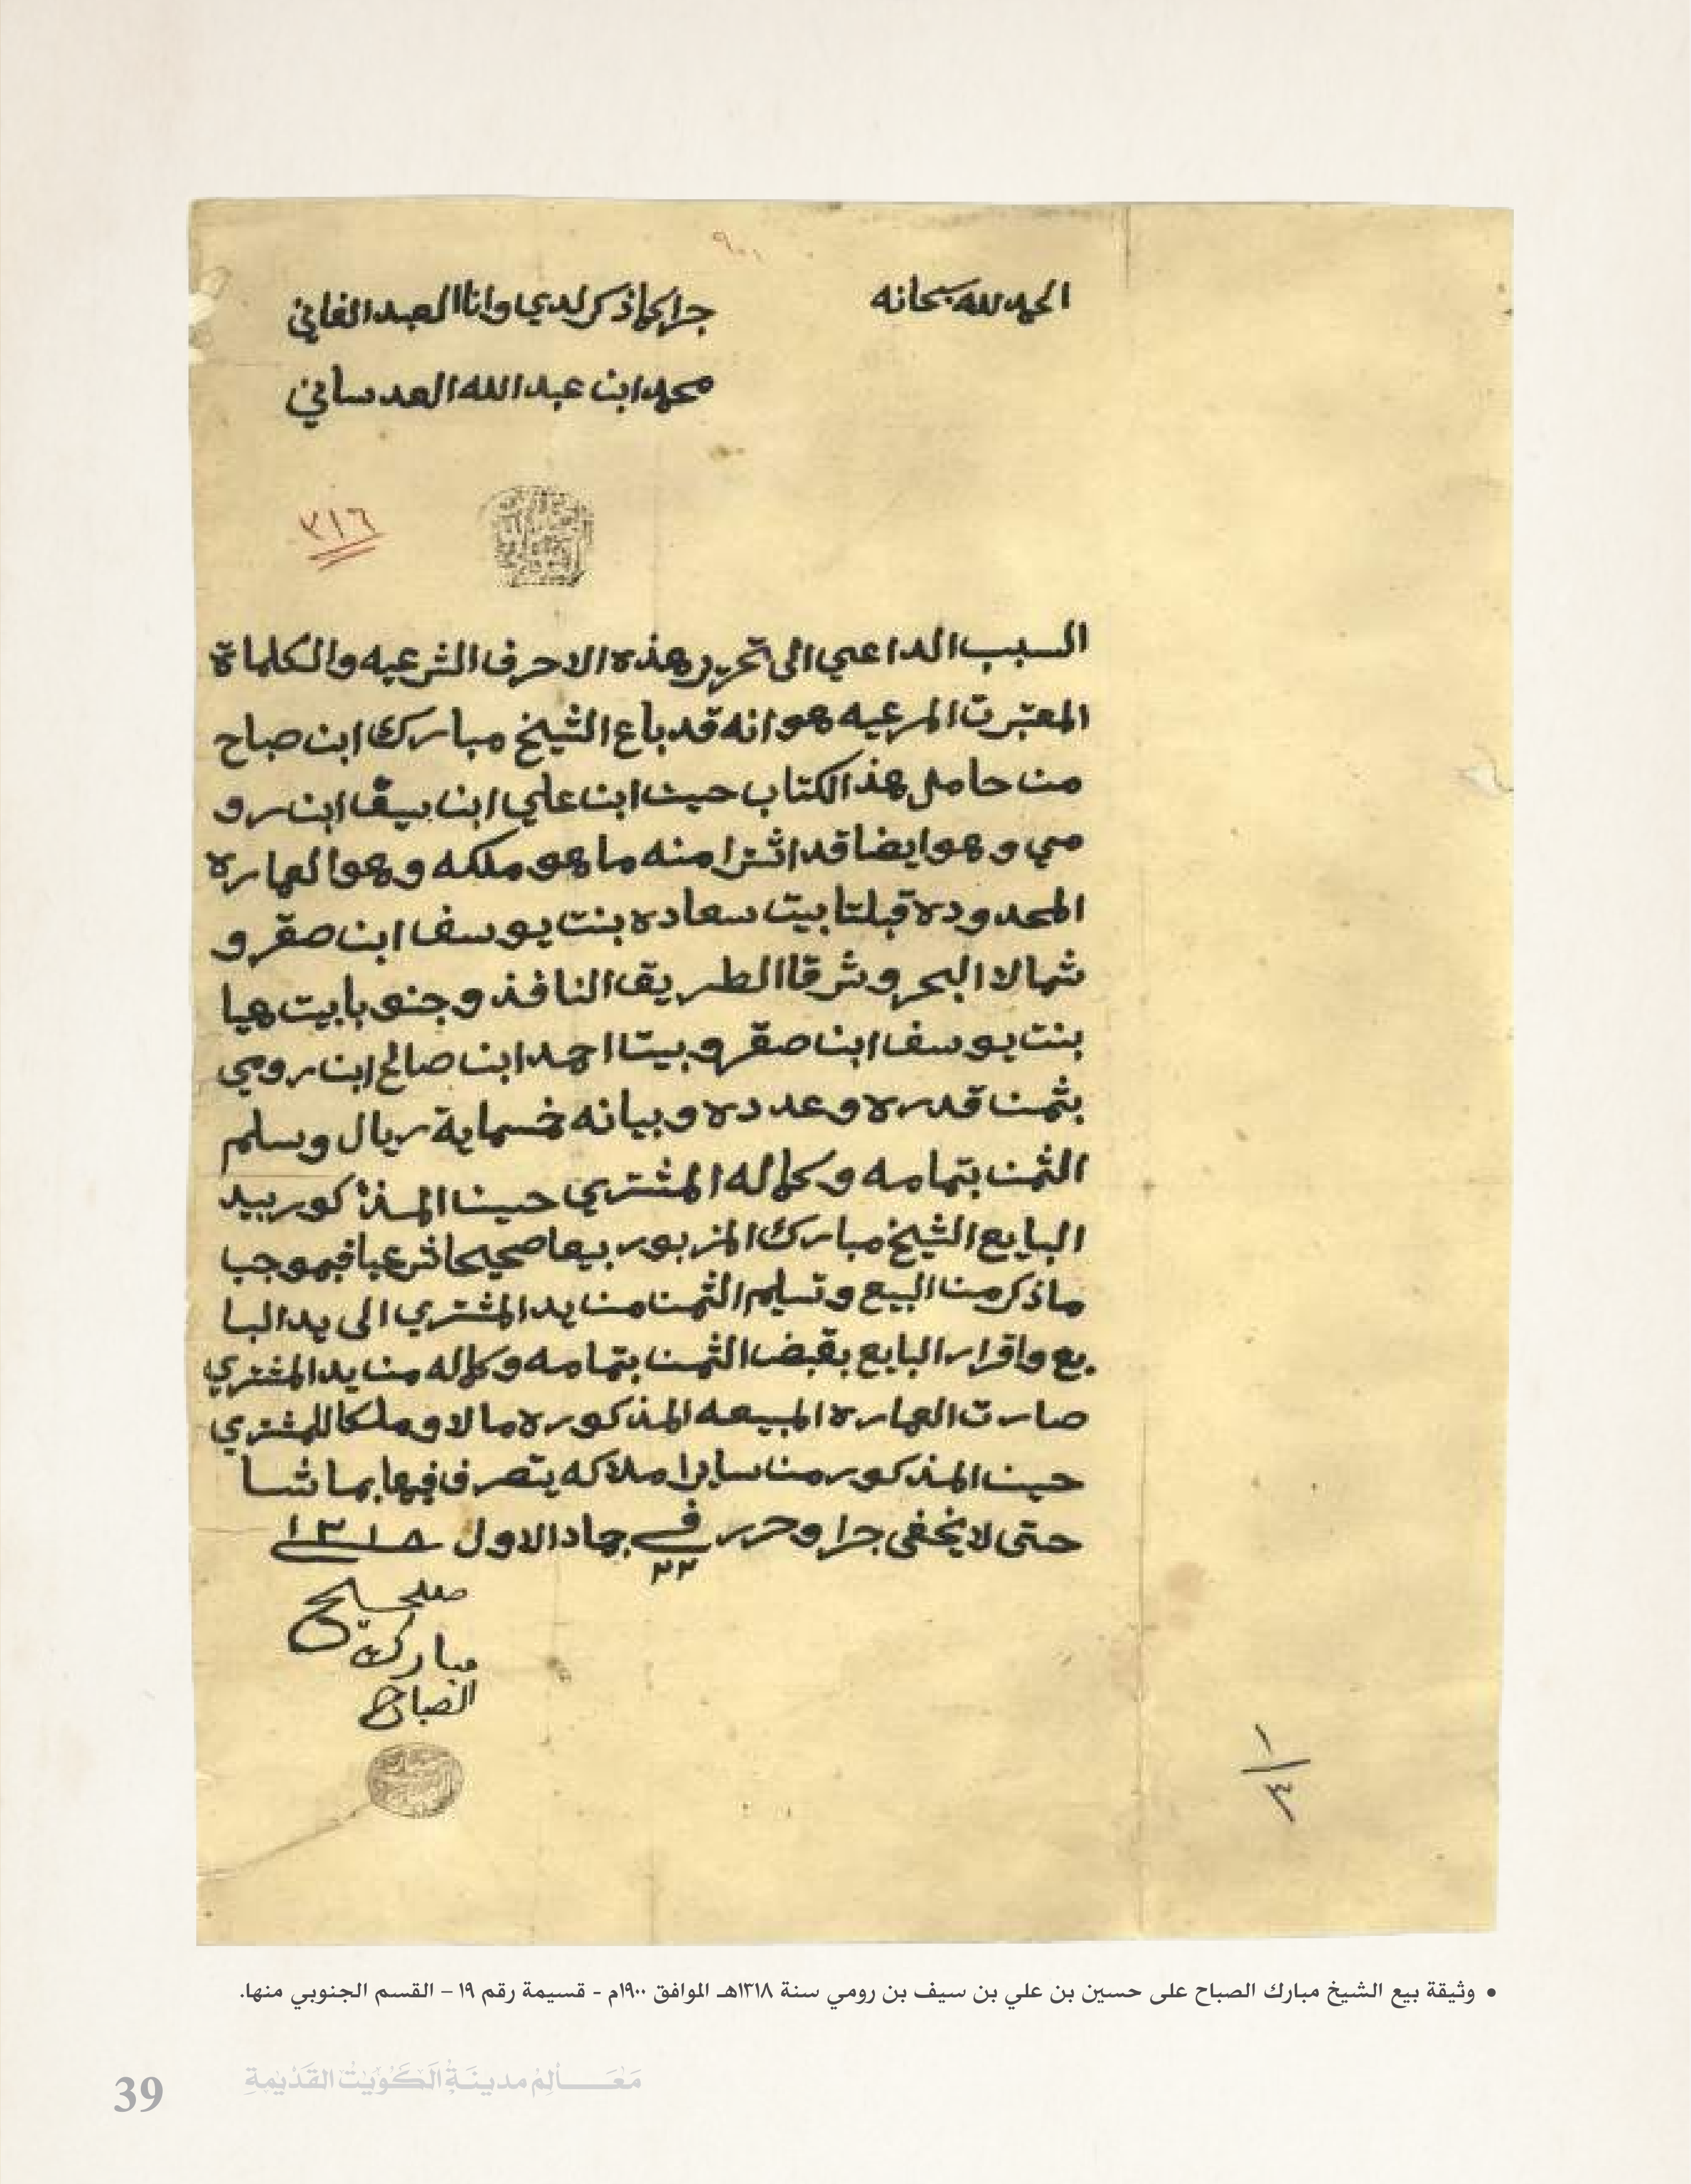 ٩٠١
الحمد لله سبحانه
جرا كما ذكر لدي وانا العبد الفاني
محمد ابن عبد الله العدساني
٣١٦
السبب الداعي الى تحرير هذه الاحرف الشرعيه والكلماة
المعتبرت المرعيه هو انه قد باع الشيخ مبارك ابن صباح
من حامل هذ الكتاب حسين ابن علي ابن سيف ابن رو
مي وهو ايضا قد اشترا منه ما هو ملكه وهو العماره
المحدوده قبلتا بيت سعاده بنت يوسف ابن صقر و
شمالا البحر وشرقا الطريق النافذ وجنوبا بيت هيا
بنت يوسف ابن صقر وبيت احمد ابن صالح ابن رومي
بثمن قدره وعدده وبيانه خمسماية ريال وسلم
الثمن بتمامه وكماله المشتري حسين المذكور بيد
البايع الشيخ مبارك المزبور بيعا صحيحا شرعيا فبموجب
ما ذكر من البيع وتسليم الثمن من يد المشتري الى يد البا
يع واقرار البايع بقبض الثمن بتمامه وكماله من يد المشتري
صارت العماره المبيعه المذكوره مالا وملكا للمشتري
حسين المذكور من ساير املاكه يتصرف فيها بما شا
حتى لا يخفى جرا وحرر في ٢٢ جماد الاول ١٣١٨
صحيح
مبارك
الصباح
١/٤
• وثيقة بيع الشيخ مبارك الصباح على حسين بن علي بن سيف بن رومي سنة ١٣١٨هـ الموافق ١٩٠٠م - قسيمة رقم ١٩ - القسم الجنوبي منها.
مَعَالِم مدينَة الكُوَيت القَديمَة
39